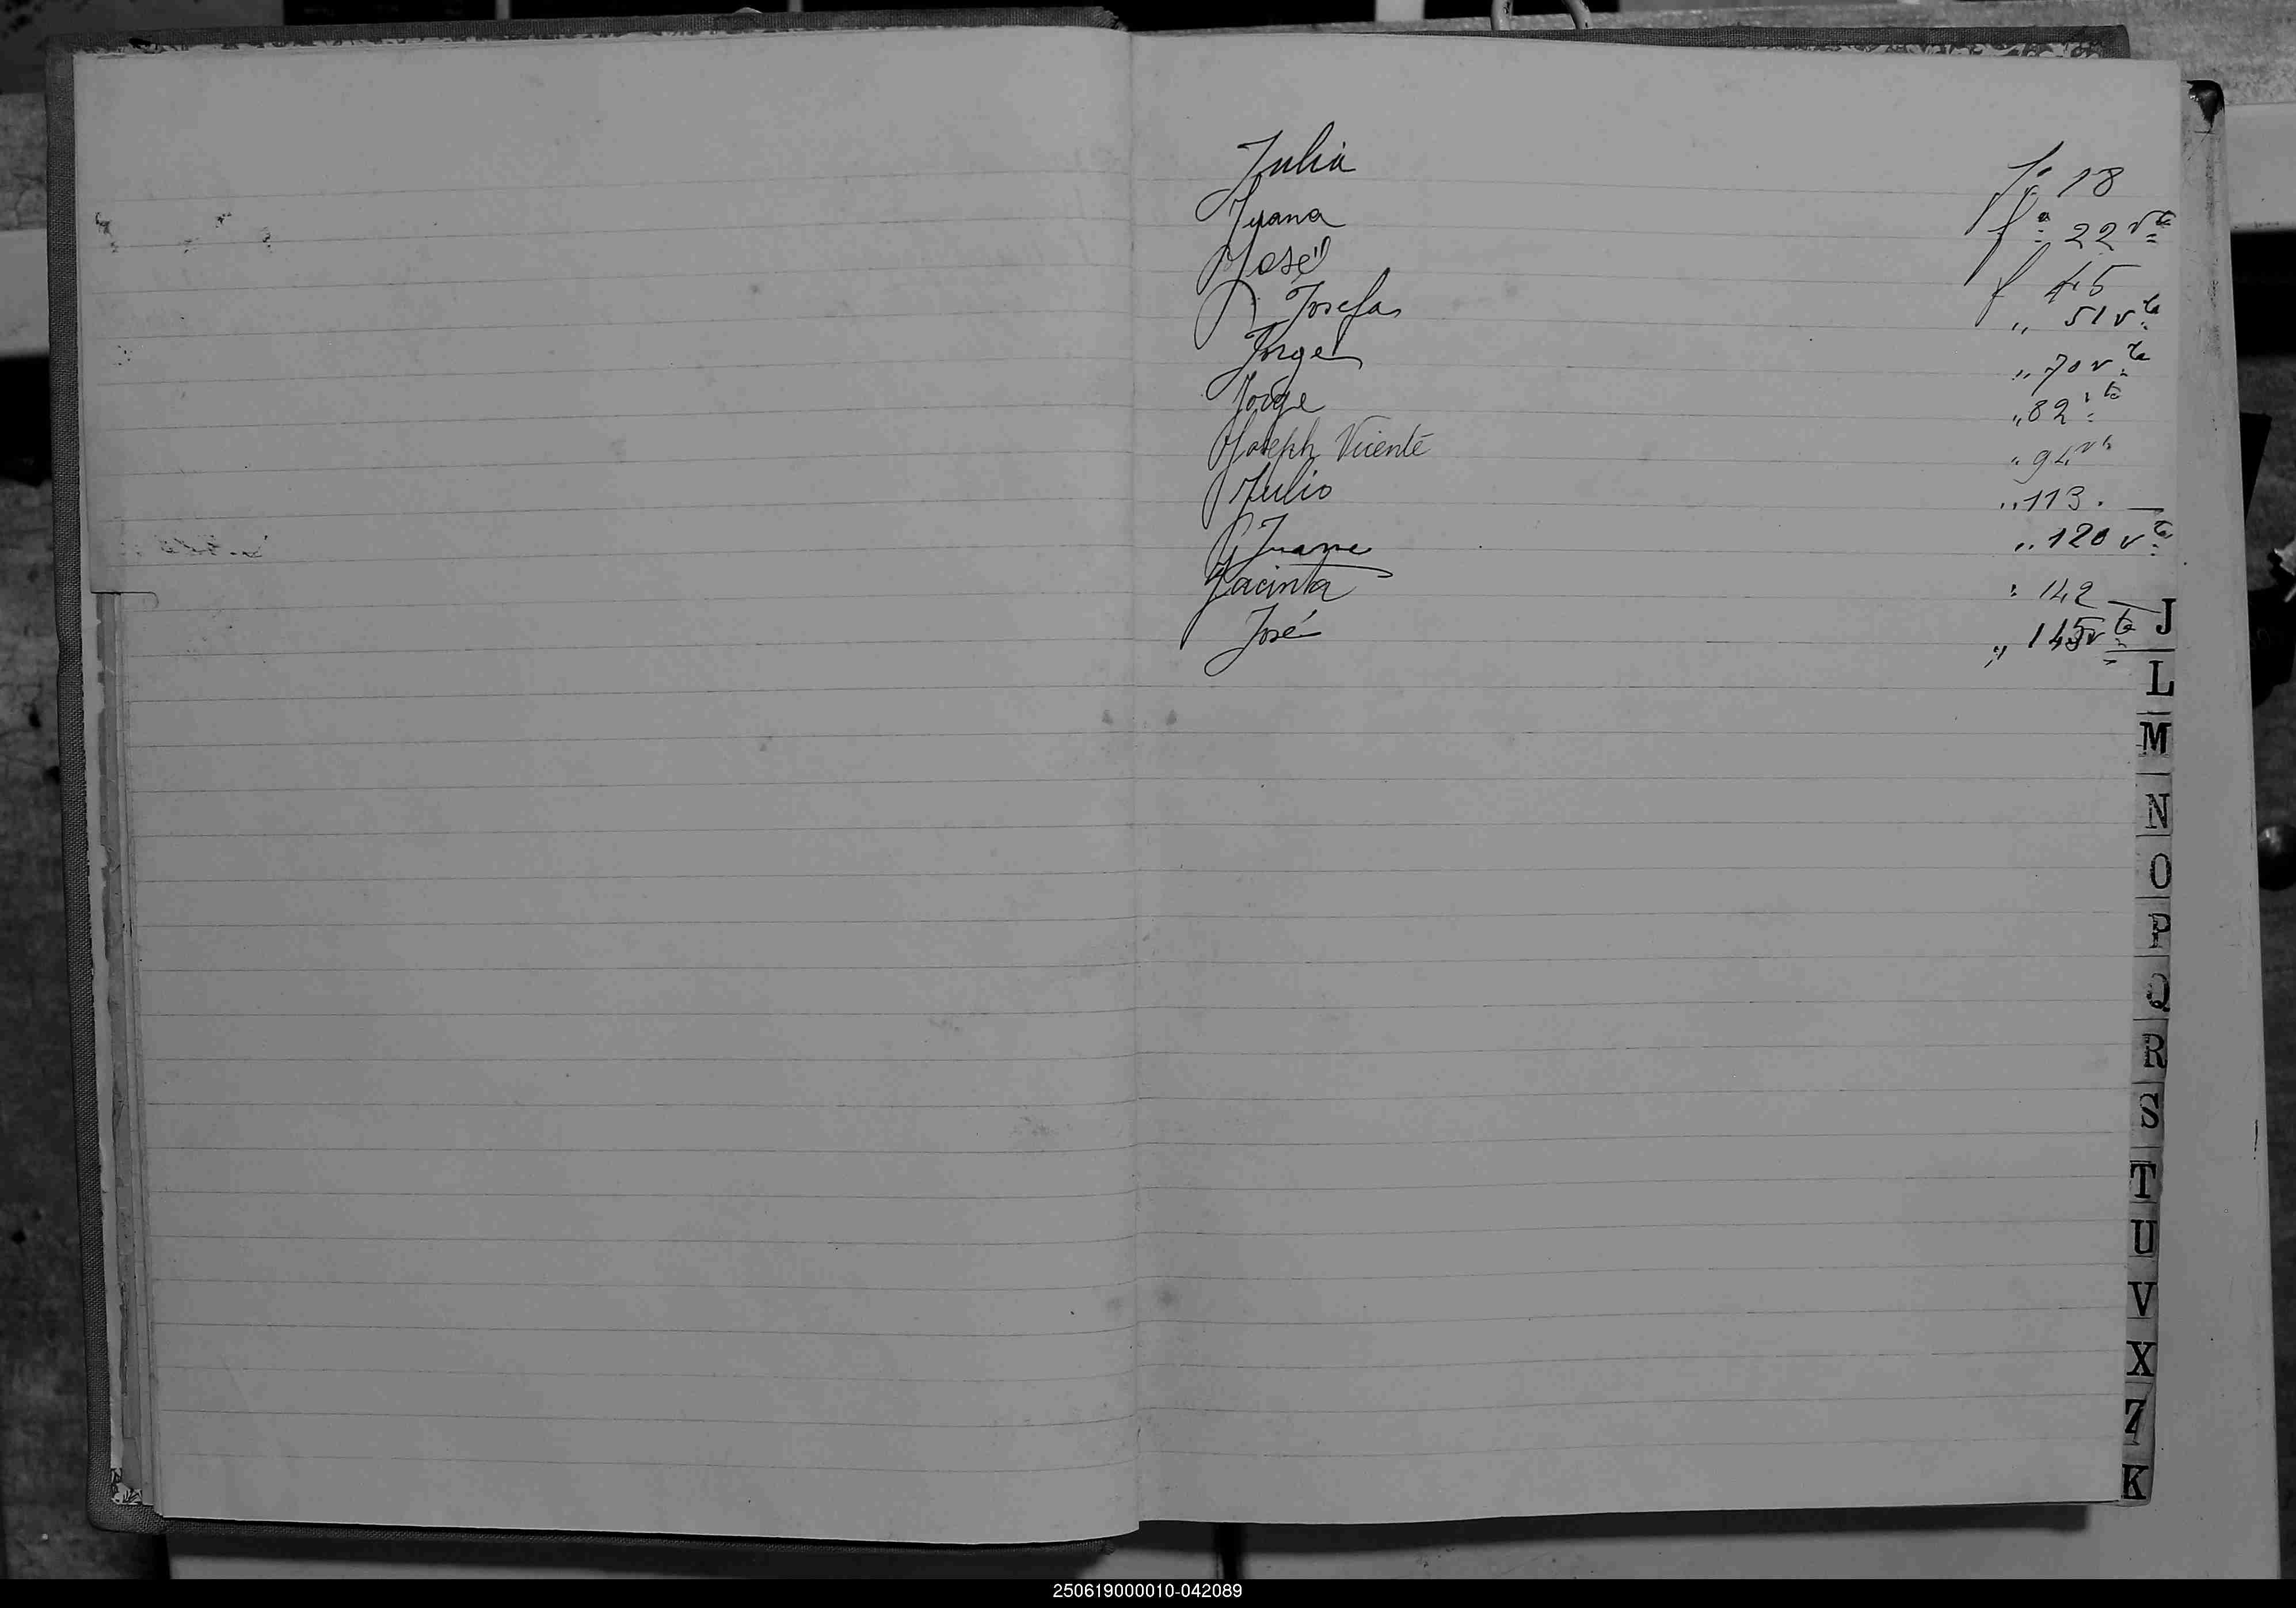 Julia fº 18
Juana fª 22 vta
José f 45
Josefa " 51 vta
Jorge " 70 vta
Jorge " 82 vta
Joseph Vicente " 94 vta
Julio " 113. —
Juana " 120 vta
Jacinta " 142 —
José " 145 vta
J
L
M
N
O
P
Q
R
S
T
U
V
X
Z
K
250619000010-042089